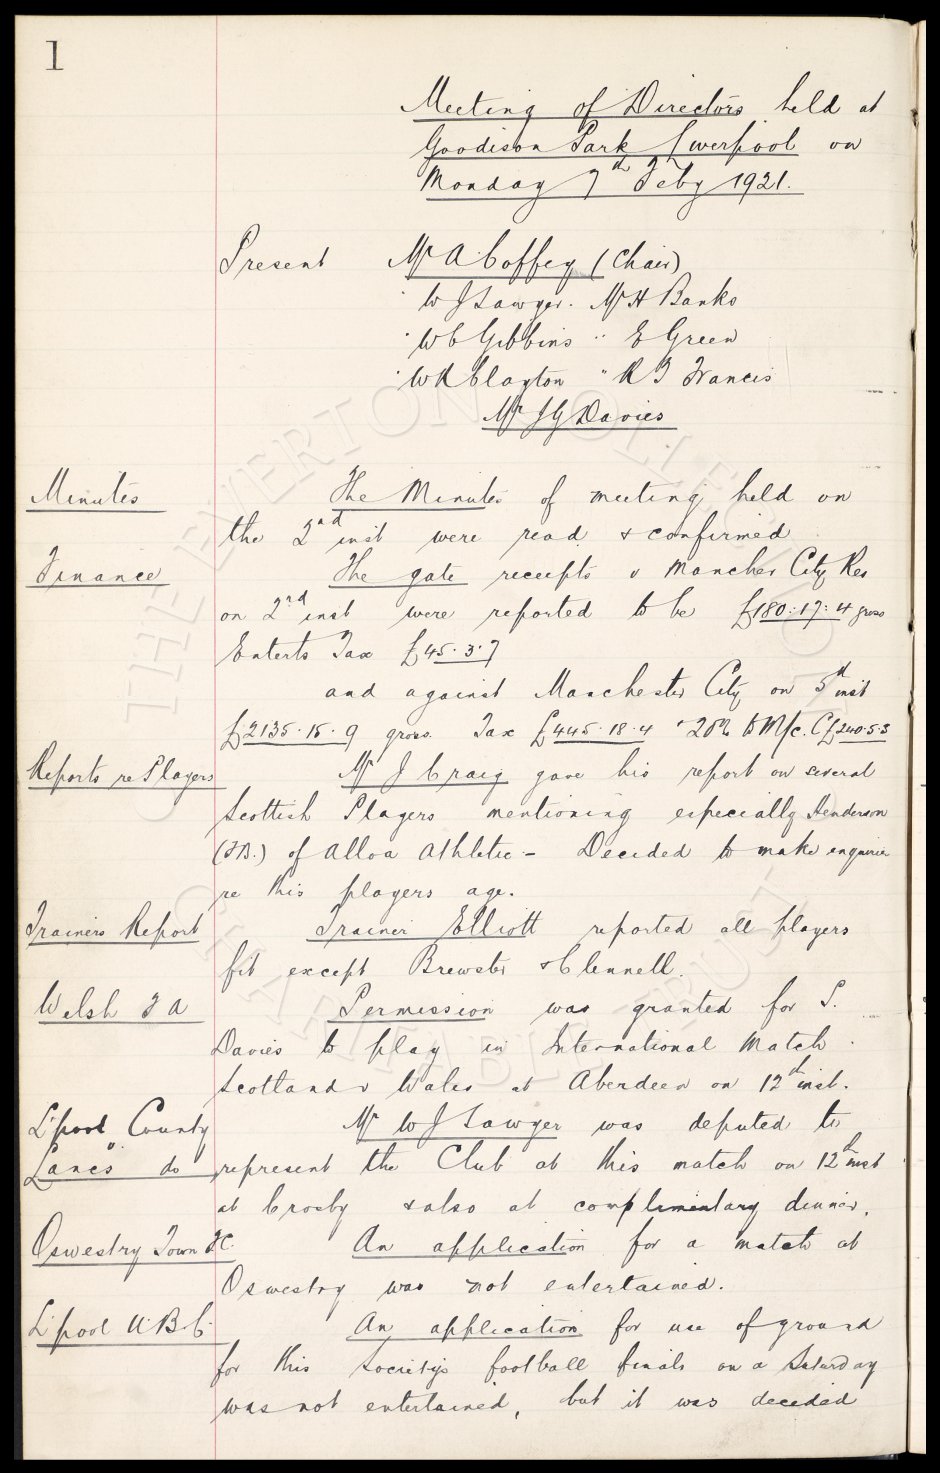 1
Meeting of Directors held at
Goodison Park Liverpool on
Monday 7th Feby 1921.
Present Mr A Coffey (Chair)
" W J Sawyer. Mr H Banks
" W C Gibbins " E Green
" W R Clayton " R T Francis
Mr J G Davies
Minutes The Minutes of meeting held on
the 2nd inst were read & confirmed
Finance The gate receipts v Manches City Res
on 2nd inst were reported to be £180:17:4 gross
Enterts Tax £45.3.7
and against Manchester City on 5th inst
£2135.15.9 gross. Tax £445.18.4 20% to M/c. C £240.5.3
Reports re Players Mr J Craig gave his report on several
Scottish Players mentioning especially Henderson
(FB.) of Alloa Athletic - Decided to make enquiries
re this players age.
Trainers Report Trainer Elliott reported all players
fit except Brewster & Clennell.
Welsh F A Permission was granted for S.
Davies to play in International Match
Scotland v Wales at Aberdeen on 12th inst.
L'pool County Mr W J Sawyer was deputed to
v.
Lancs do represent the Club at this match on 12th inst
at Crosby & also at complimentary dinner.
Oswestry Town FC. An application for a match at
Oswestry was not entertained.
L'pool U.B.C. An application for use of ground
for this Society's football finals on a Saturday
was not entertained, but it was decided
THE EVERTON COLLECTION
CHARITABLE TRUST